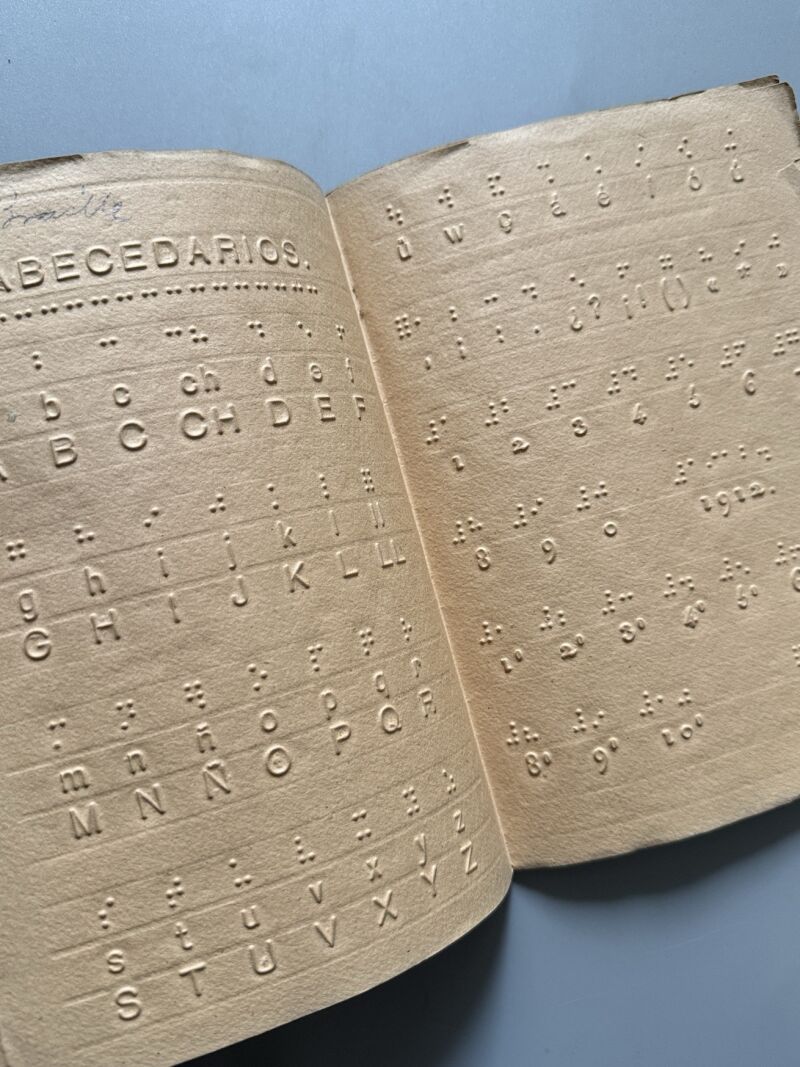 Braille
ABECEDARIOS.
b c ch d e f
A B C CH D E F
g h i j k l ll
G H I J K L LL
m n ñ o p q r
M N Ñ O P Q R
s t u v x y z
S T U V X Y Z
ü w ç á é í ó ú
, ; : . ¿? ¡! () « * »
1 2 3 4 5 6 7
8 9 0 1912.
1º 2º 3º 4º 5º 6
8º 9º 10º